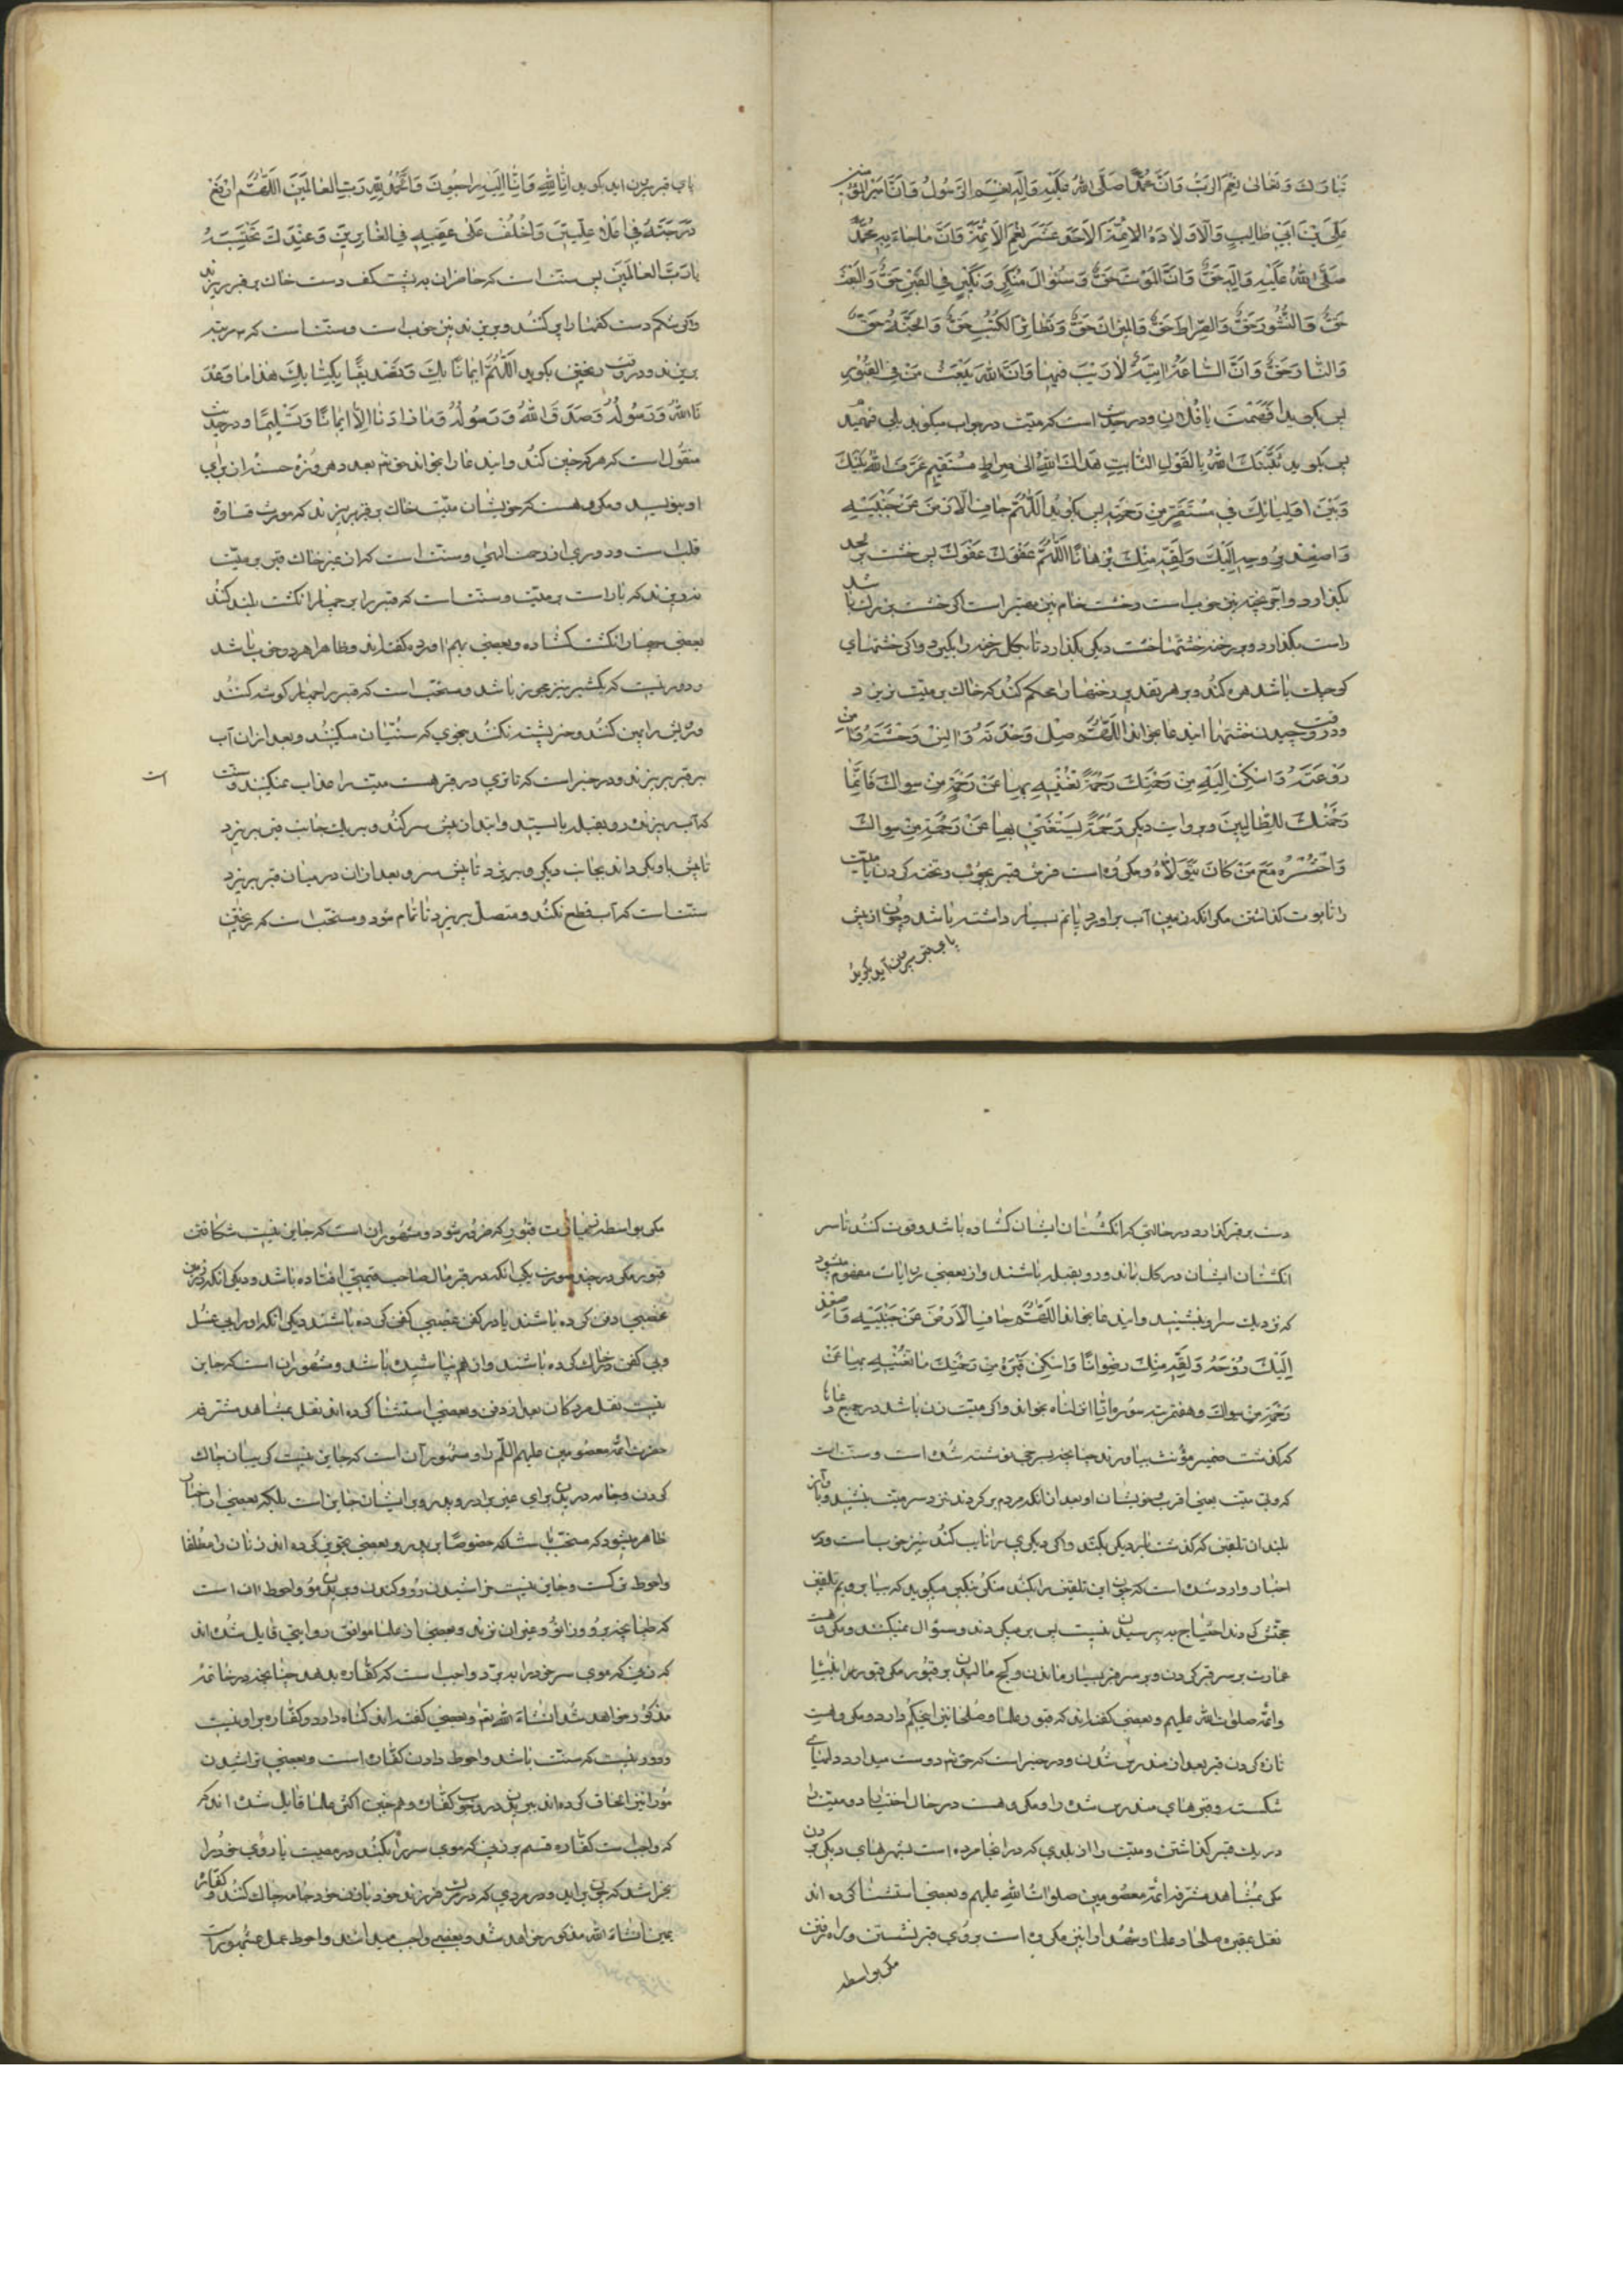 تَبَارَكَ وَتَعَالىٰ نِعْمَ الرَّبُّ وَاَنَّ مُحَمَّدًا صَلَّى اللهُ عَلَيْهِ وَآلِهِ نِعْمَ الرَّسُولُ وَاَنَّ اَمِيرَالمُؤْمِنِينَ
عَلِىَّ بْنَ اَبِي طَالِبٍ وَاَوْلَادَهُ الاَئِمَّةَ الاَحَدَ عَشَرَ نِعْمَ الاَئِمَّةُ وَاَنَّ مَا جَاءَ بِهِ مُحَمَّدٌ
صَلَّى اللهُ عَلَيْهِ وَآلِهِ حَقٌّ وَاَنَّ المَوْتَ حَقٌّ وَسُئوالَ مُنْكَرٍ وَنَكِيرٍ فِي القَبْرِ حَقٌّ وَالبَعْثَ
حَقٌّ وَالنُّشُورَ حَقٌّ وَالصِّرَاطَ حَقٌّ وَالمِيزَانَ حَقٌّ وَتَطَايُرَ الكُتُبِ حَقٌّ وَالجَنَّةَ حَقٌّ
وَالنَّارَ حَقٌّ وَاَنَّ السَّاعَةَ اتِيَةٌ لَا رَيْبَ فِيهَا وَاَنَّ اللهَ يَبْعَثُ مَنْ فِي القُبُورِ
پس بگويد اَفَهِمْتَ يَا فُلَانُ ودر حديث است كه ميّت در جواب ميگويد بلى فهميدم
پس بگويد ثَبَّتَكَ اللهُ بِالقَوْلِ الثَّابِتِ هَدَاكَ اللهُ اِلىٰ صِرَاطٍ مُسْتَقِيمٍ عَرَّفَ اللهُ بَيْنَكَ
وَبَيْنَ اَوْلِيَائِكَ فِي مُسْتَقَرٍّ مِنْ رَحْمَتِهِ پس بگويد اَللّٰهُمَّ جَافِ الْاَرْضَ عَنْ جَنْبَيْهِ
وَاَصْعِدْ بِرُوحِهِ اِلَيْكَ وَلَقِّهِ مِنْكَ بُرْهَانًا اَللّٰهُمَّ عَفْوَكَ عَفْوَكَ پس خشت بر لحد
بگذارد واجر پخته نيز خوب است وخشت خام نيز معتبر است اگر خشت بزرك باشد
راست بگذارد وبر رخنه خشتها خشت ديگر بگذارد تا بكل رخنه را بگيرد واگر خشتهاى
كوچك باشد هره كنند وبر هر تقدير رخنها را محكم كنند كه خاك بر ميّت نريزد
ودر وقت چيدن خشتها ايندعا بخواند اَللّٰهُمَّ صِلْ وَحْدَتَهُ وَانِسْ وَحْشَتَهُ وَامِنْ
رَوْعَتَهُ وَاَسْكِنْ اِلَيْهِ مِنْ رَحْمَتِكَ رَحْمَةً تُغْنِيهِ بِهَا عَنْ رَحْمَةٍ مِنْ سِوَاكَ فَاِنَّمَا
رَحْمَتُكَ لِلظَّالِمِينَ وبروايت ديگر رَحْمَةً يَسْتَغْنِي بِهَا عَنْ رَحْمَةِ مِنْ سِوَاكَ
وَاحْشُرْهُ مَعَ مَنْ كَانَ يَتَوَلَّاهُ ومكروه است فرش قبر بچوب وتخته كردن يا ميّت
را تابوت گذاشتن مكر انكه زمين آب براورد يا نم بسيار داشته باشد وچون از پيش
پاى قبر بيرون آيد بگويد
پاى قبر بيرون ايد بگويد اِنَّا لِلّٰهِ وَاِنَّا اِلَيْهِ رَاجِعُونَ وَالْحَمْدُ لِلّٰهِ رَبِّ العَالَمِينَ اَللّٰهُمَّ ارْفَعْ
دَرَجَتَهُ فِي اَعْلَا عِلِّيِّينَ وَاخْلُفْ عَلىٰ عَقِبِهِ فِي الغَابِرِينَ وَعِنْدَكَ نَحْتَسِبُهُ
يَا رَبَّ العَالَمِينَ پس سنّت است كه حاضران به پشت كف دست خاك بر قبر ريزند
واگر بشكم دست كفها را پر كنند وبريزند نيز خوب است وسنّت است كه سه مرتبه
بريزند ودر وقت ريختن بگويد اَللّٰهُمَّ ايمَانًا بِكَ وَتَصْدِيقًا بِكِتَابِكَ هٰذَا مَا وَعَدَ
نَا اللهُ وَرَسُولُهُ وَصَدَقَ اللهُ وَرَسُولُهُ وَمَا زَادَنَا اِلَّا ايمَانًا وَتَسْلِيمًا ودر حديث
منقول است كه هر كه چنين كند وايندعا را بخواند حق تع بعدد هر ذرّه حسنه از براى
او بنويسد ومكروهست كه خويشان ميّت خاك بر قبر بريزند كه مورث قساوة
قلب است ودورى از رحمت الهى وسنّت است كه از غير خاك قبر بر ميّت
نريزند كه بار است بر ميّت وسنّت است كه قبر را بر چهار انگشت بلند كنند
بعضى چهار انگشت گشاده وبعضى بهم اورده گفته اند وظاهرا هر دو خوب باشد
ودور نيست كه يكشبر نيز مجوز باشد ومستحب است كه قبر را چهار گوشه كنند
وبالش را پهن كنند وخر پشته نكنند بنحوى كه سنّيان ميكنند وبعد از ان آب
بر قبر بريزند ودر خبر است كه تا ترى در قبر هست ميّت را عذاب نميكنند وسنّت
است
كه آب ريزنده رو بقبله بايستد وابتدا از پيش سر كند وبر يك جانب قبر بريزد
تا پيش پا وبگرداند بجانب ديگر وبريزد تا پيش سر وبعد از ان در ميان قبر بريزد
سنّت است كه آب قطع نكند ومتصل بريزد تا تمام شود ومستحب است كه ريختن
دست بر قبر گذارد در حالتى كه انگشتان ايشان گشاده باشد وقوت كنند تا سر
انگشتان ايشان در گل بماند ورو بقبله باشند واز بعضى روايات مفهوم ميشود
كه نزديك سر او بنشيند وايندعا بخواند اَللّٰهُمَّ جَافِ الْاَرْضَ عَنْ جَنْبَيْهِ وَاَصْعِدْ
اِلَيْكَ رُوحَهُ وَلَقِّهِ مِنْكَ رِضْوَانًا وَاَسْكِنْ قَبْرَهُ مِنْ رَحْمَتِكَ مَا تُغْنِيهِ بِهَا عَنْ
رَحْمَةِ مِنْ سِوَاكَ وهفت مرتبه سوره انّا انزلناه بخواند واگر ميّت زن باشد در جميع دعاها
كه گذشت ضمير مؤنث بياورند چنانچه بسرخى نوشته شده است وسنّت است
كه ولىّ ميّت يعنى اقرب خويشان او بعد از انكه مردم برگردند نزد سر ميّت بنشيند وباواز
بلند ان تلقين كه گذشت بار ديگر بكند واگر ديگرى را نايب كند نيز خوب است ودر
اخبار وارد شده است كه چون اين تلقين را بكند منكر بنكير ميگويد كه بيا برويم تلقين
حجتش كردند احتياج به پرسيدن نيست پس بر ميگردند وسؤال نميكنند ومكروهست
عمارت بر سر قبر كردن وبر سر قبر بسيار ماندن وگچ ماليدن بر قبور مكر قبور انبيا
وائمه صلوات الله عليهم وبعضى گفته اند كه قبور علما وصلحا نيز اينحكم دارد ومكروهست
تازه كردن قبر بعد از مندرس شدن ودر خبر است كه حق تع دوست ميدارد دلهاى
شكسته وقبرهاى مندرس شده را ومكروهست در حال اختيار دو ميّت را
در يك قبر گذاشتن وميّت را از بلدى كه در انجا مرده است بشهرهاى ديگر بردن
مكر بمشاهد مشرّفه ائمّه معصومين صلوات الله عليهم وبعضى استثنا كرده اند
نقل بمقبره صلحا وعلما وشهدا وا نيز مكروه است بروى قبر نشستن وراه رفتن
مكر بواسطه
مكر بواسطه زيارت قبورى كه ضرور شود ومشهور ان است كه جايز نيست شكافتن
قبور مكر در چند صورت يكى انكه در قبر مال صاحب قيمتى افتاده باشد وديگر انكه در زمين
غصبى دفن كرده باشند يا در كفن غصبى كفن كرده باشند ديگر انكه او را بى غسل
وبى كفن در خاك كرده باشند وان هم نپاشيده باشد ومشهور ان است كه جايز
نيست نقل مردگان بعد از دفن وبعضى استثنا كرده اند نقل بمشاهد مشرّفه
حضرت ائمّه معصومين عليهم السّلم را ومشهور آن است كه جايز نيست گريبان چاك
كردن وجامه دريدن براى غير برادر وپدر وبر ايشان جايز است بلكه بعضى از اخبار
ظاهر ميشود كه مستحب باشد كه خصوصا بر پدر وبعضى تجويز كرده اند زنان را مطلقا
واحوط تركست وجايز نيست خراشيدن رو وكندن وبريدن مو واحوط ان است
كه طپانچه بر رو وزانو وغير ان نزند وبعضى از علما موافق روايتى قايل شده اند
كه زنى كه موى سر خود را ببرّد واجب است كه كفّاره بدهد چنانچه در خاتمه
مذكور خواهد شد انشاء الله تع وبعضى گفته اند گناه دارد وكفّاره بر او نيست
ودور نيست كه سنّت باشد واحوط دادن كفّاره است وبعضى تراشيدن
مو را نيز الحاق كرده اند ببريدن در وجوب كفّاره وهمچنين اكثر علما قايل شده اند كه
كه واجب است كفّاره قسم بر زنى كه موى سر را بكند در مصيبت يا روى خود را
بخراشد كه خون برايد ودر مردى كه در مرگ فرزند خود يا زن خود جامه چاك كند وكفّاره
يمين انشاء الله مذكور خواهد شد وبعضى واجب ميدانند واحوط عمل بمشهور است